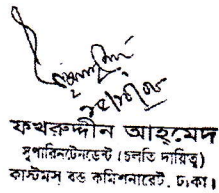 ফখরুদ্দীন আহমেদ
সুপারিনটেনডেন্ট (চলতি দায়িত্ব)
কাস্টমস বন্ড কমিশনারেট, ঢাকা।